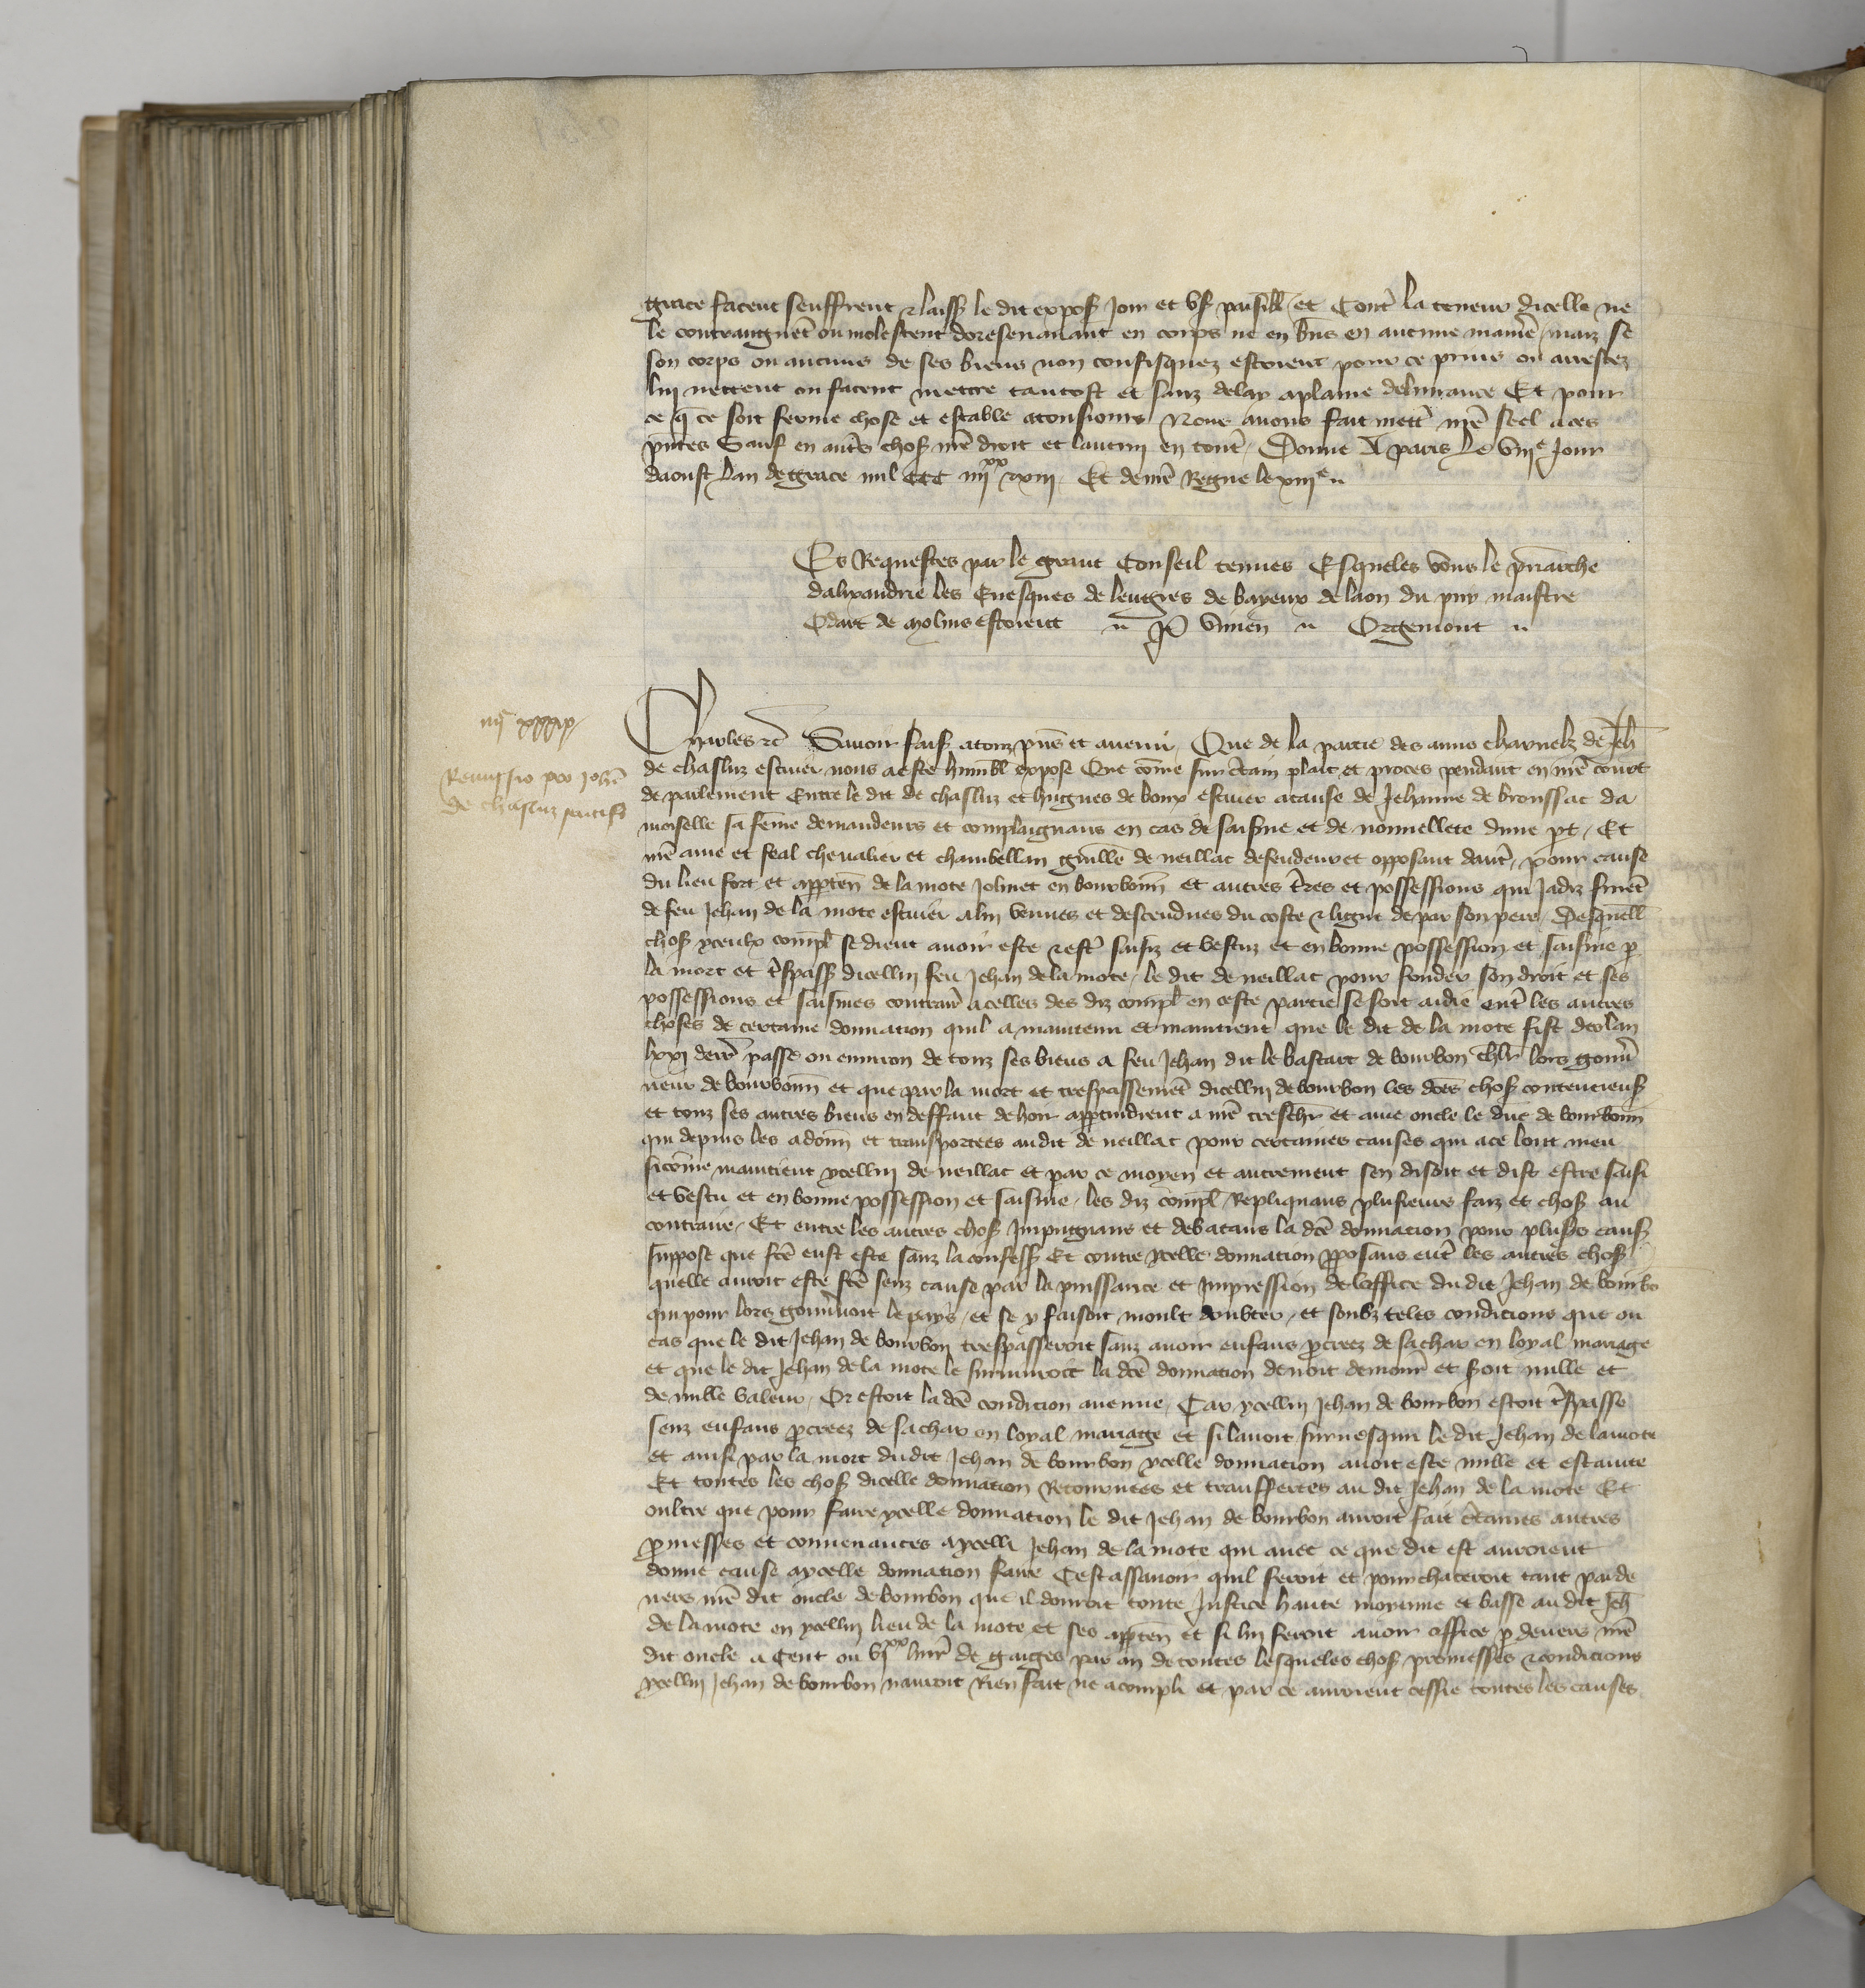 grace facent seuffrent & laiss le dit expos Joir et us paisibl et Contr la teneur dicelle ne
le contraingnēt ou molestent doresenavant en corps ne en bns en aucune manie maiz se
son corps ou aucuns de ses biens non confisquez estoient pour ce prins ou arrestez
lui mettent ou facent mettre tantost et sanz delay a plaine delivrance Et pour
ce q̄ ce soit ferme chose et estable atousiours Nous avons fait mettr nrē seel a ces
pn̄tes Sauf en autrs chos nrē droit et lautrui en tout Donne A paris Le viiie Jour
daoust lan de grace mil ccc iiiixx & xiii Et de nrē Regne le xiiie
Es Requestes par le grant Conseil tenues Esqueles vous le pr̄iarche
dalixandrie les Evesques de lengres de bayeux de laon du puy maistre
Odart de molins estoient P Vivien Orgemont
iiiic xxxix
Remissio pro Johē
de chasluz scutif
Charles &c Savoir fais a touz pn̄s et avenir Que de la partie des amis charnelz de Jeh
de chasluz escuier nous a este humbl expose Que cōme sur c̄tain plait et proces pendant en nrē court
de parlement Entre le dit de chasluz et hugues de bonx escuier a cause de Jehanne de broussac da
moiselle sa fēme demandeurs et complaignans en cas de saisine et de nouvellete dune pt Et
nrē ame et feal chevalier et chambellan guillē de neillac defendeur et opposant dautr pour cause
du lieu fort et apptēn de la mote Jolivet en bourbonn et autres trēs et possessions qui Jadiz furēt
de feu Jehan de la mote escuier a lui venues et descendues du coste & ligne de par son pere Desquell
chos yceulx compl se dient avoir este & estr saisiz et vestuz et en bonne possession et saisine p
la mort et trspass dicellui feu Jehan de la mote le dit de neillac pour fonder son droit et ses
possessions et saisines contrair a celles des diz compl en ceste partie se soit aidie entr les autres
choses de certaine donnation quil a maintenu et maintient que le dit de la mote fist des lan
lxxi derr passe ou environ de touz ses biens a feu Jehan dit le bastart de bourbon chlr lors gouv
neur de bourbonn et que par la mort et trespassemēt dicellui de bourbon les dēes chos contencieus
et touz ses autres biens en deffaut de hoir appt̄indrent a nrē treschr et ame oncle le duc de bourbonn
qui depuis les a donn et transportees au dit de neillac pour certaines causes qui a ce lont meu
sicōme maintient ycellui de neillac et par ce moyen et autrement sen disoit et dist estre saisi
et vestu et en bonne possession et saisine les diz compl Repliquans plusieurs faiz et chos au
contraire Et entre les autres chos Impugnans et debatans la dcē donnation pour plus caus
suppose que fcē eust este sanz la confess Et contre ycelle donnation pposans entr les autres chos
quelle auroit este fcē senz cause par la puissance et Impression de loffice du dit Jehan de bourbo
qui pour lors gouvnoit le pays et se y faisoit moult doubter et soubz teles condicions que ou
cas que le dit Jehan de bourbon trespasseroit sanz avoir enfans p̄creez de sa char en loyal mariage
et que le dit Jehan de la mote le survivroit la dcē donnation devoit demour et soit nulle et
de nulle valeur Or estoit la dcē condicion avenue Car ycellui Jehan de bourbon estoit trspasse
senz enfans p̄creez de sa char en loyal mariage et si lavoit survesqui le dit Jehan de la mote
et ainsi par la mort du dit Jehan de bourbon ycelle donnation avoit este nulle et estainte
Et toutes les chos dicelle donnation Retournees et transfertes au dit Jehan de la mote Et
oultre que pour faire ycelle donnation le dit Jehan de bourbon auroit fait c̄taines autres
p̄messes et convenances a ycelli Jehan de la mote qui avec ce que dit est auroient
donne cause a ycelle donnation faire Cest assavoir quil feroit et pourchaceroit tant par de
vers nrē dit oncle de bourbon que il donroit toute Justice haute moyenne et basse au dit Jeh
de la mote en ycellui lieu de la mote et ses apptēn et si lui feroit avoir office p devers nrē
dit oncle a Cent ou vixx livr de gaiges par an de toutes lesqueles chos promesses & condicions
ycellui Jehan de bourbon nauroit Rien fait ne acompli et par ce auroient cessie toutes les causes